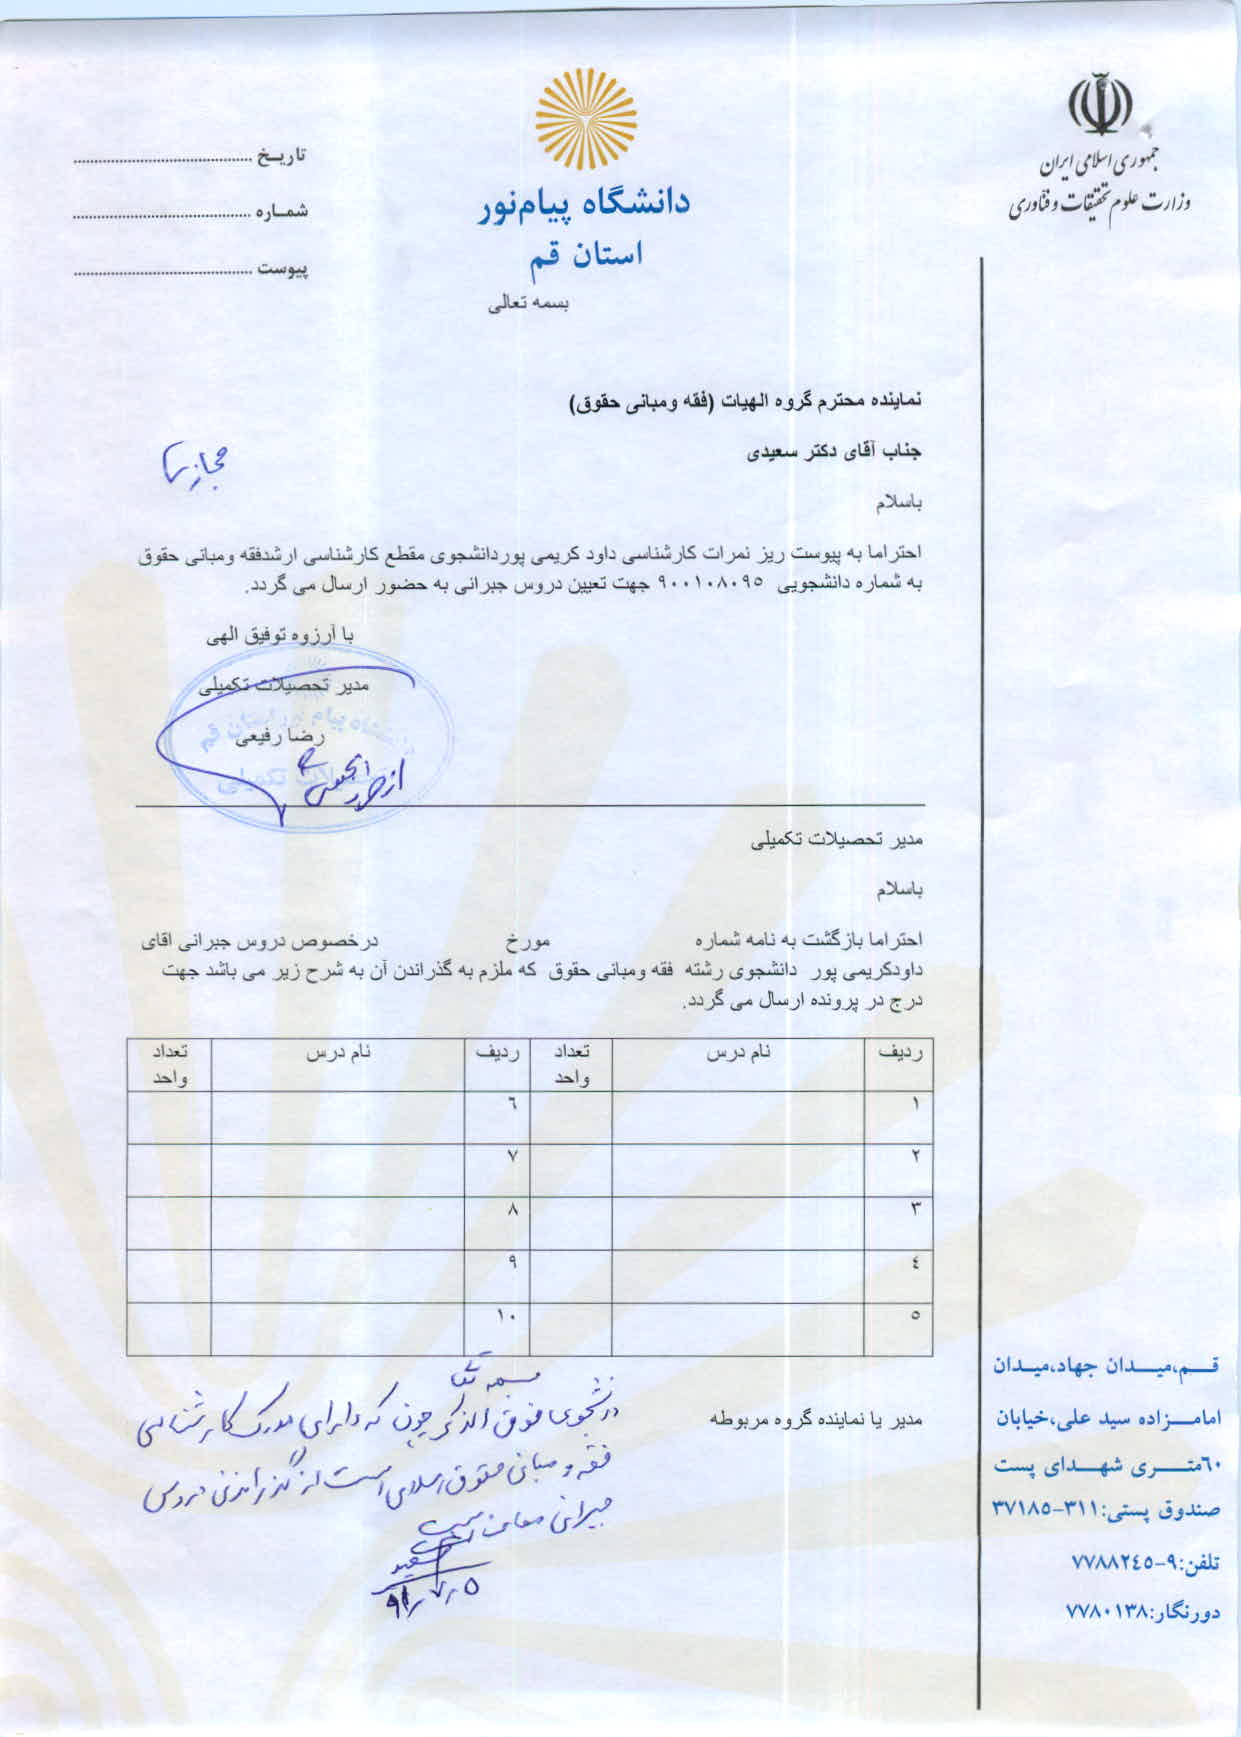 جمهوری اسلامی ایران
وزارت علوم تحقیقات و فناوری
دانشگاه پیام‌نور
استان قم
بسمه تعالی
تاریـخ ............................................
شمـاره ............................................
پیوست ............................................
نماینده محترم گروه الهیات (فقه ومبانی حقوق)
جناب آقای دکتر سعیدی
باسلام
احتراما به پیوست ریز نمرات کارشناسی داود کریمی پوردانشجوی مقطع کارشناسی ارشدفقه ومبانی حقوق
به شماره دانشجویی ۹۰۰۱۰۸۰۹۵ جهت تعیین دروس جبرانی به حضور ارسال می گردد.
با آرزوه توفیق الهی
مدیر تحصیلات تکمیلی
رضا رفیعی
مدیر تحصیلات تکمیلی
باسلام
احتراما بازگشت به نامه شماره مورخ درخصوص دروس جبرانی اقای
داودکریمی پور دانشجوی رشته فقه ومبانی حقوق که ملزم به گذراندن آن به شرح زیر می باشد جهت
درج در پرونده ارسال می گردد.
ردیف نام درس تعداد واحد ردیف نام درس تعداد واحد
۱ ۶
۲ ۷
۳ ۸
٤ ۹
۵ ۱۰
مدیر یا نماینده گروه مربوطه
بسمه تعالی
دانشجوی فوق الذکر چون که دارای مدرک کارشناسی
فقه و مبانی حقوق اسلامی است از گذراندن دروس
جبرانی معاف است
سعیدی
۹۱/۷/۵
قـــم،میـــدان جهاد،میـدان
امامـــزاده سید علی،خیابان
۶۰متـــری شهــدای پست
صندوق پستی:۳۱۱-۳۷۱۸۵
تلفن:۹-۷۷۸۸۲٤۵
دورنگار:۷۷۸۰۱۳۸